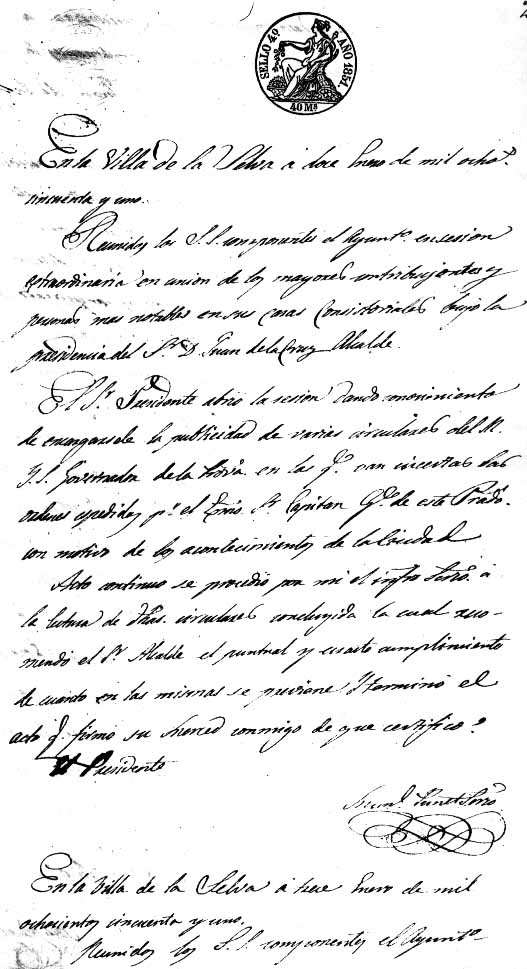 SELLO 4º AÑO 1851.
40 Ms
En la Villa de la Selva á doce Enero de mil ochots.
cincuenta y uno.
Reunidos los S.S. componentes el Ayuntº. en sesion
estraordinaria en union de los mayores contribuyentes y
personas mas notables en sus casas Consistoriales bajo la
presidencia del Sr. D. Juan de la Cruz Alcalde.
El Sr. Presidente abrió la sesion dando conocimiento
de encargarsele la publicidad de varias circulares del M.
Y. S. Governador de la Prova. en las q. van incertas las
ordenes espedidas pr. el Exmo. Sr. Capitan Gl. de este Pradº.
con motivo de los acontecimientos de la Ciudad
Acto continuo se procedio por mi el infro. Srio. á
la lectura de dhas. circulares concluyida la cual reco-
mendó el Sr. Alcalde el puntual y exacto cumplimiento
de cuanto en las mismas se previene Y terminó el
acto q. firmó su Merced conmigo de que certifico.
El Presidente
Srio.
En la Villa de la Selva á trece Enero de mil
ochocientos cincuenta y uno.
Reunidos los S.S. componentes el Ayuntº.